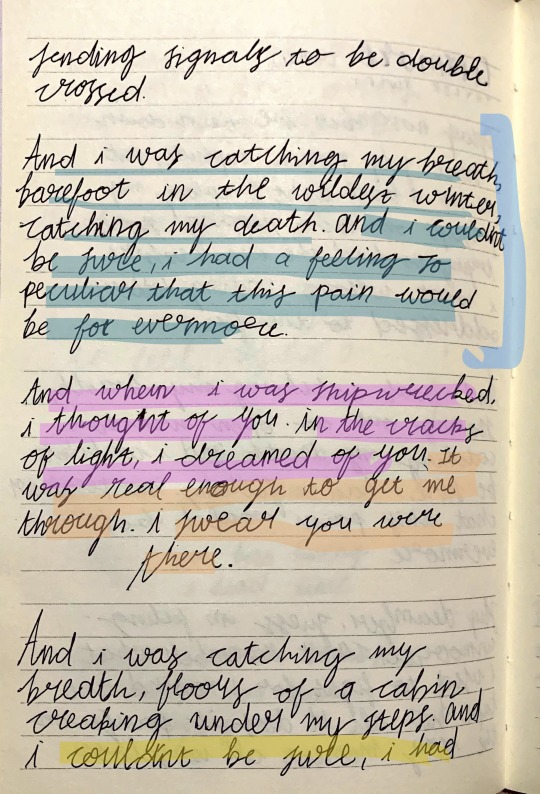 sending signals to be double
crossed.
And i was catching my breath,
barefoot in the wildest winter,
catching my death. and i couldnt
be sure, i had a feeling so
peculiar that this pain would
be for evermore.
And when i was shipwrecked,
i thought of you. in the cracks
of light, i dreamed of you. It
was real enough to get me
through. i swear you were
there.
And i was catching my
breath, floors of a cabin
creaking under my steps. and
i couldnt be sure, i had